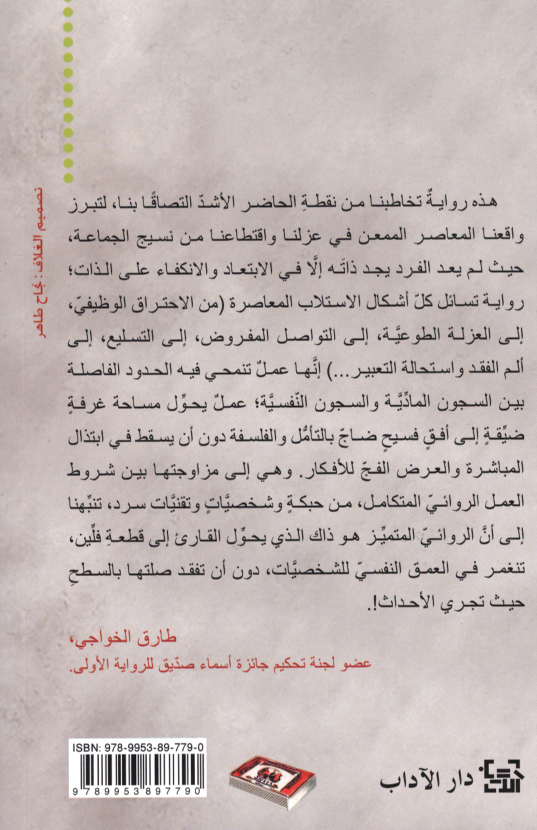 هذه روايةٌ تخاطبنا من نقطةِ الحاضر الأشدّ التصاقًا بنا، لتبرز
واقعنا المعاصر الممعن في عزلنا واقتطاعنا من نسيج الجماعة،
حيث لم يعد الفرد يجد ذاتَه إلَّا في الابتعاد والانكفاء على الذات؛
رواية تسائل كلّ أشكال الاستلاب المعاصرة (من الاحتراق الوظيفيّ،
إلى العزلة الطوعيَّة، إلى التواصل المفروض، إلى التسليع، إلى
ألم الفقد واستحالة التعبير...) إنَّها عملٌ تنمحي فيه الحدود الفاصلة
بين السجون المادِّيَّة والسجون النّفسيَّة؛ عملٌ يحوِّل مساحة غرفةٍ
ضيِّقةٍ إلى أفقٍ فسيحٍ ضاجّ بالتأمُّل والفلسفة دون أن يسقط في ابتذال
المباشرة والعرض الفجّ للأفكار. وهي إلى مزاوجتها بين شروط
العمل الروائيّ المتكامل، من حبكةٍ وشخصيَّاتٍ وتقنيَّات سرد، تنبِّهنا
إلى أنَّ الروائيّ المتميِّز هو ذاك الذي يحوِّل القارئ إلى قطعةِ فلّين،
تنغمر في العمق النفسيّ للشخصيَّات، دون أن تفقد صلتها بالسطحِ
حيث تجري الأحداث!.
طارق الخواجي،
عضو لجنة تحكيم جائزة أسماء صدّيق للرواية الأولى.
تصميم الغلاف: نجاح طاهر
ISBN: 978-9953-89-779-0
9 789953 897790
دار الآداب